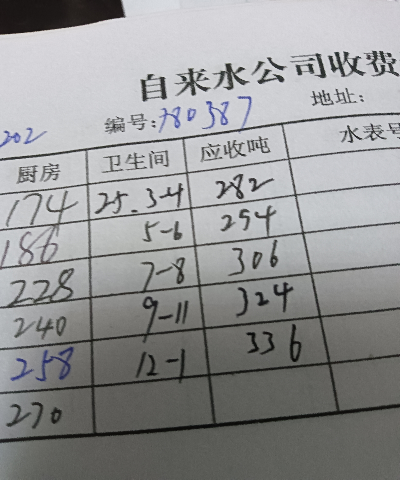 自来水公司收费
202 编号:780387 地址:
厨房 卫生间 应收吨 水表号
174 25.3-4 282
186 5-6 294
228 7-8 306
240 9-11 324
258 12-1 336
270